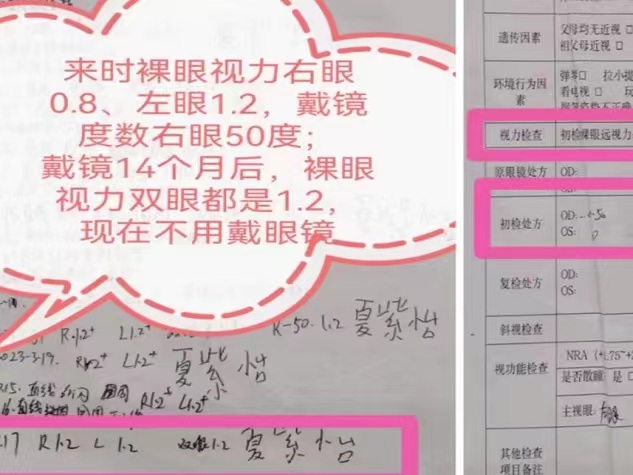 来时裸眼视力右眼
0.8、左眼1.2，戴镜
度数右眼50度；
戴镜14个月后，裸眼
视力双眼都是1.2，
现在不用戴眼镜
R1.2⁺ L1.2⁺ R-50.1.2 夏紫怡
2023-3.19. R1.2⁺ L1.2⁺ 夏紫怡
R1.2⁺ L1.2⁺
R1.2 L1.2 双眼1.2 夏紫怡
遗传因素
父母均无近视 □
祖父母近视 □
环境行为因
素
弹琴□ 拉小提
看电视 □ 玩
视力检查
初检裸眼远视力
原眼镜处方
OD:
初检处方
OD: -50
OS: 0
复检处方
OD:
OS:
斜视检查
视功能检查
NRA (+1.75
是否散瞳 是 □
主视眼:
其他检查
项目备注